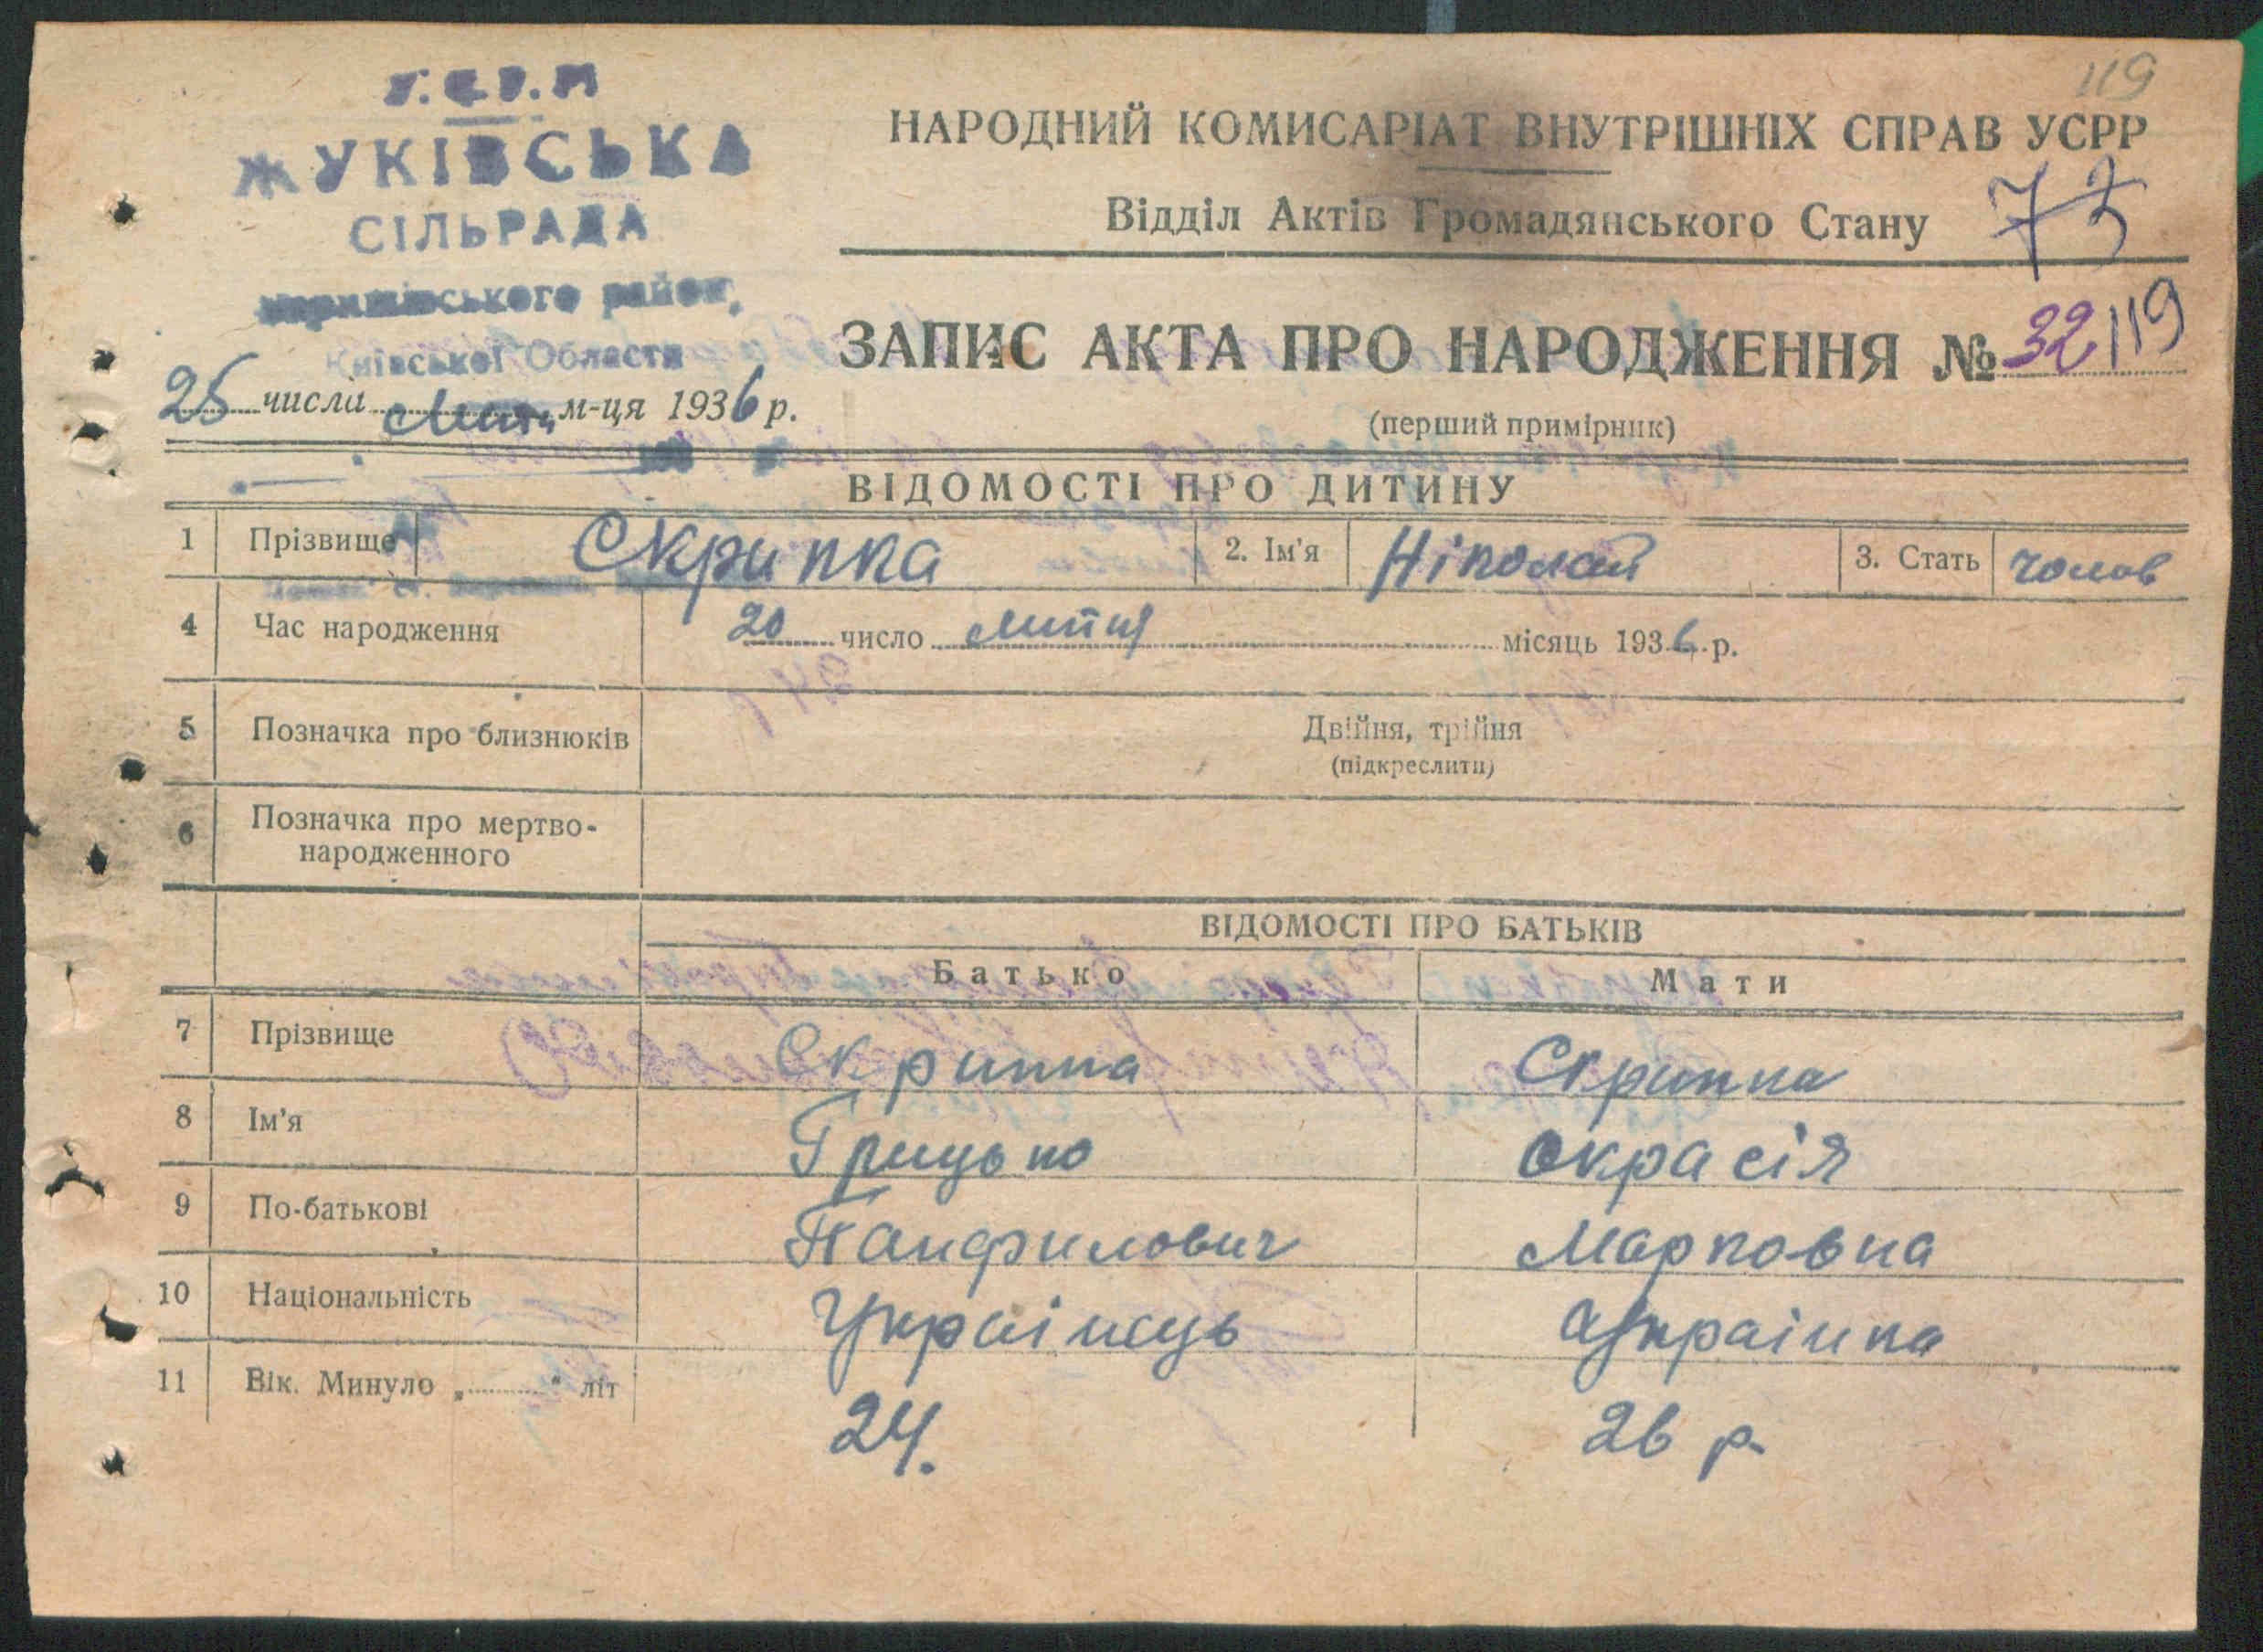 119
У.С.Р.Р
ЖУКІВСЬКА
СІЛЬРАДА
району
Київської Области
25 числа Липн м-ця 1936 р.
НАРОДНИЙ КОМИСАРІАТ ВНУТРІШНІХ СПРАВ УСРР
Відділ Актів Громадянського Стану 73
ЗАПИС АКТА ПРО НАРОДЖЕННЯ № 32 119
(перший примірник)
ВІДОМОСТІ ПРО ДИТИНУ
1 Прізвище Скрипка 2. Ім'я Ніколай 3. Стать чолов
4 Час народження 20 число липня місяць 1936 р.
5 Позначка про близнюків Двійня, трійня
(підкреслити)
6 Позначка про мертво-
народженного
ВІДОМОСТІ ПРО БАТЬКІВ
Батько Мати
7 Прізвище Скрипка Скрипка
8 Ім'я Грицько Окрасія
9 По-батькові Панфилович Марковна
10 Національність Українець Українка
11 Вік. Минуло „ “ літ 24. 26 р.